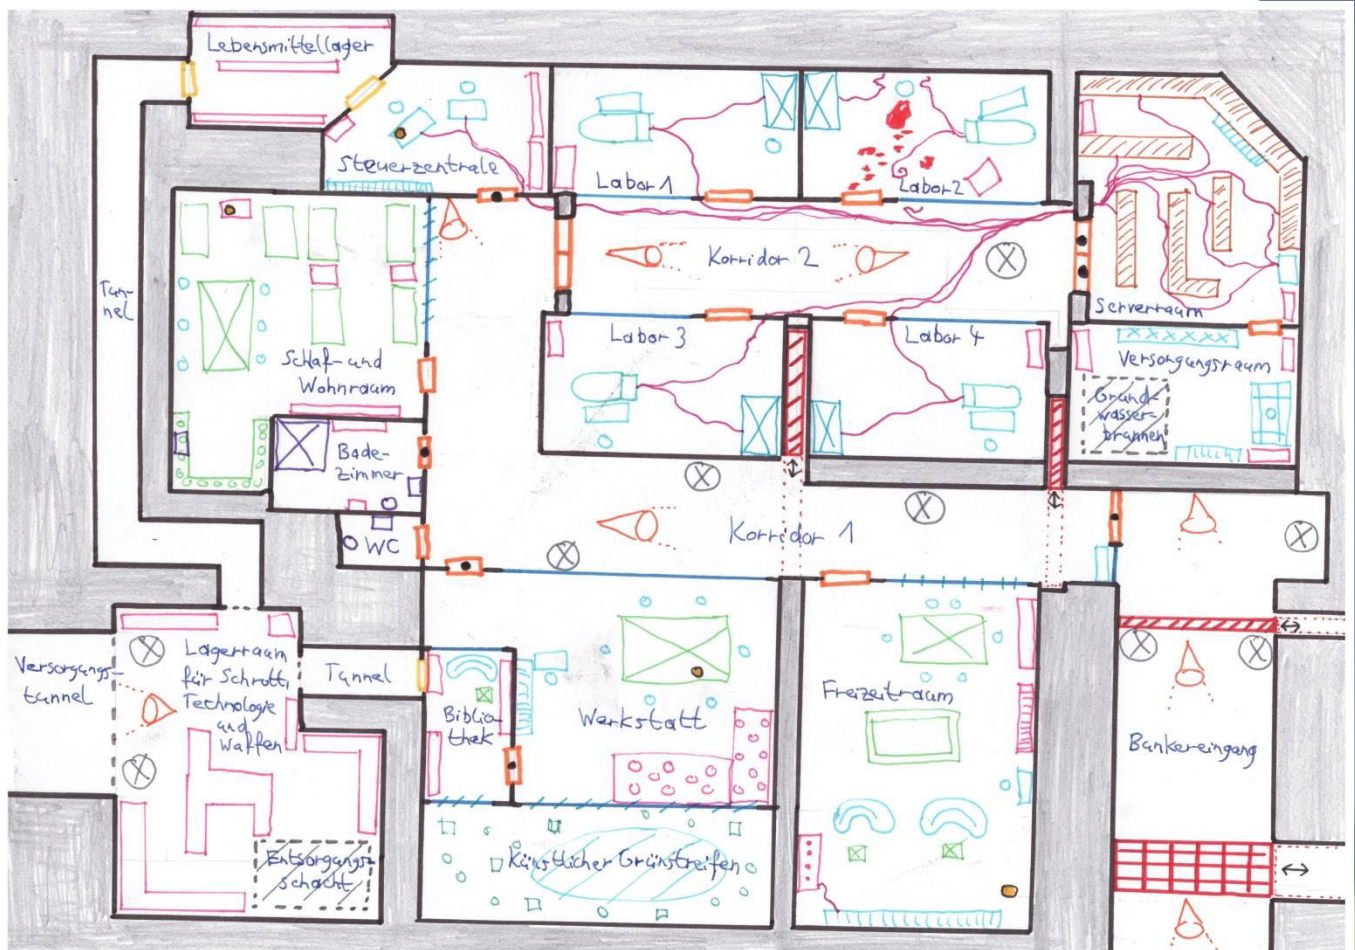 Lebensmittellager
Steuerzentrale
Labor 1
Labor 2
Korridor 2
Serverraum
Tun-
nel
Schlaf- und
Wohnraum
Labor 3
Labor 4
Versorgungsraum
Grund-
wasser-
brunnen
Bade-
zimmer
WC
Korridor 1
Versorgungs-
tunnel
Lagerraum
für Schrott,
Technologie
und
Waffen
Tunnel
Biblio-
thek
Werkstatt
Freizeitraum
Bunkereingang
Entsorgungs-
schacht
Künstlicher Grünstreifen